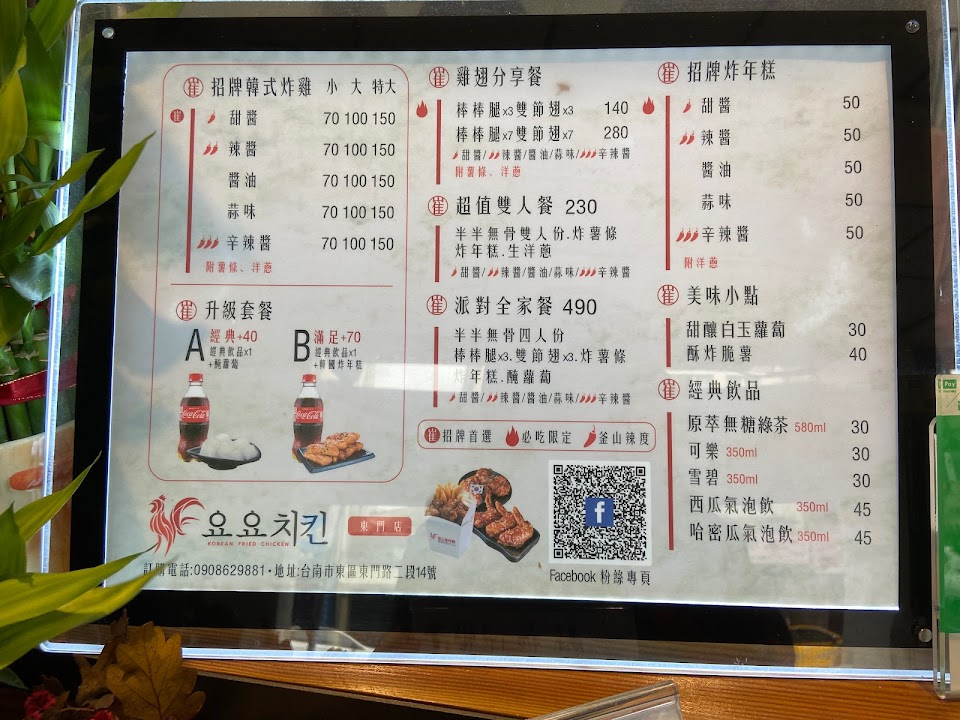 崔 招牌韓式炸雞 小 大 特大
崔 甜醬 70 100 150
辣醬 70 100 150
醬油 70 100 150
蒜味 70 100 150
辛辣醬 70 100 150
附薯條、洋蔥
崔 升級套餐
A 經典+40
經典飲品x1
+醃蘿蔔
B 滿足+70
經典飲品x1
+韓國炸年糕
Coca-Cola
Coca-Cola
요요치킨
KOREAN FRIED CHICKEN
東門店
訂購電話:0908629881•地址:台南市東區東門路二段14號
崔 雞翅分享餐
棒棒腿x3雙節翅x3 140
棒棒腿x7雙節翅x7 280
甜醬/辣醬/醬油/蒜味/辛辣醬
附薯條、洋蔥
崔 超值雙人餐 230
半半無骨雙人份.炸薯條
炸年糕.生洋蔥
甜醬/辣醬/醬油/蒜味/辛辣醬
崔 派對全家餐 490
半半無骨四人份
棒棒腿x3.雙節翅x3.炸薯條
炸年糕.醃蘿蔔
甜醬/辣醬/醬油/蒜味/辛辣醬
崔 招牌首選 必吃限定 釜山辣度
Facebook 粉絲專頁
崔 招牌炸年糕
甜醬 50
辣醬 50
醬油 50
蒜味 50
辛辣醬 50
附洋蔥
崔 美味小點
甜釀白玉蘿蔔 30
酥炸脆薯 40
崔 經典飲品
原萃無糖綠茶 580ml 30
可樂 350ml 30
雪碧 350ml 30
西瓜氣泡飲 350ml 45
哈密瓜氣泡飲 350ml 45
Pay